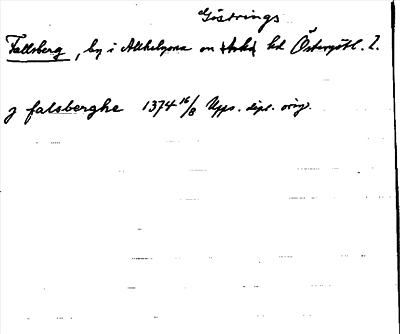 Göstrings
Fallsberg, by i Allhelgona sn Aska hd Östergötl. l.
j falsberghe 1374 16/8 Upps. dipl. orig.